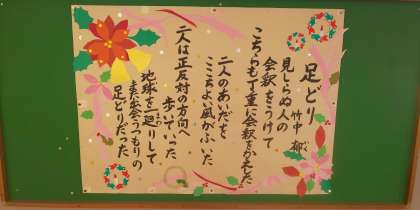 足どり
竹中 郁
見しらぬ人の
会釈をうけて
こちらも丁重に会釈をかえした
二人のあいだを
ここちよい風がふいた
二人は正反対の方向へ
歩いていった
地球を一廻りして
まわ
また出会うつもりの
足どりだった